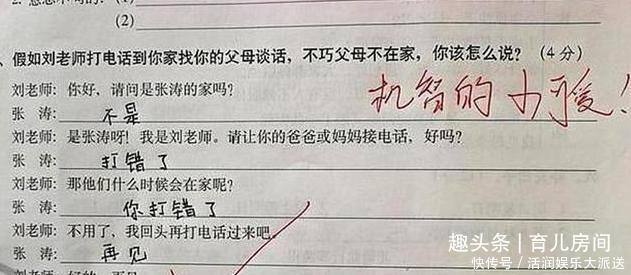 (2)
、假如刘老师打电话到你家找你的父母谈话，不巧父母不在家，你该怎么说？（4分）
刘老师：你好，请问是张涛的家吗？
机智的小可爱！
张 涛：不是
刘老师：是张涛呀！我是刘老师。请让你的爸爸或妈妈接电话，好吗？
张 涛：打错了
刘老师：那他们什么时候会在家呢？
张 涛：你打错了
刘老师：不用了，我回头再打电话过来吧。
张 涛：再见
趣头条｜育儿房间
快传号／活润娱乐大派送